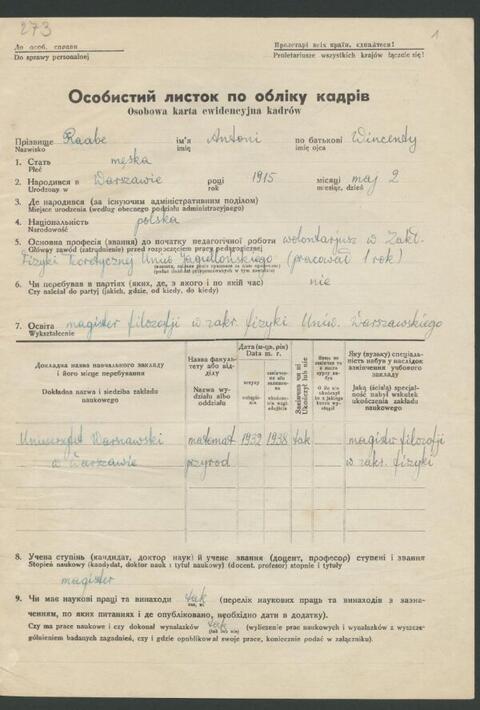 273
1
До особ. справи
Do sprawy personalnej
Пролетарі всіх країн, єднайтеся!
Proletariusze wszystkich krajów łączcie się!
Особистий листок по обліку кадрів
Osobowa karta ewidencyjna kadrów
Прізвище Raabe ім'я Antoni по батькові Wincenty
Nazwisko imię imię ojca
1. Стать męska
Płeć
2. Народився в Warszawie році 1915 місяці maj 2
Urodzony w roku miesiąc, dzień
3. Де народився (за існуючим адміністративним поділом)
Miejsce urodzenia (według obecnego podziału administracyjnego)
4. Національність polska
Narodowość
5. Основна професія (звання) до початку педагогічної роботи wolontarjusz w Zakł.
Główny zawód (zatrudnienie) przed rozpoczęciem pracy pedagogicznej
Fizyki Teoretycznej Uniw. Jagiellońskiego (pracował 1 rok)
6. Чи перебував в партіях (яких, де, з якого і по якій час) nie
Czy należał do partyj (jakich, gdzie, od kiedy, do kiedy)
7. Освіта magister filozofji w zakr. fizyki Uniw. Warszawskiego
Wykształcenie
Докладна назва навчального закладу і його місце перебування
Dokładna nazwa i siedziba zakładu naukowego
Назва факультету або відділу
Nazwa wydziału albo oddziału
Дата (м-ць, рік)
Data m. r.
вступу
Закінчив чи ні
Ukończył lub nie
Яку (вузьку) спеціальність набув у наслідок закінчення учбового закладу
Jaką (ścisłą) specjalność nabył wskutek ukończenia zakładu naukowego
Uniwersytet Warszawski matemat 1932 1938 tak magister filozofji
w Warszawie przyrod w zakr. fizyki
8. Учена ступінь (кандидат, доктор наук) й учене звання (доцент, професор) ступені і звання
Stopień naukowy (kandydat, doktor nauk i tytuł naukowy) (docent, profesor) stopnie i tytuły
magister
9. Чи має наукові праці та винаходи tak (перелік наукових праць та винаходів з зазна-
так, ні
ченням, по яких питаннях і де опубліковано, необхідно дати в додатку).
Czy ma prace naukowe i czy dokonał wynalazków tak (wyliczenie prac naukowych i wynalazków z wyszcze-
(tak lub nie)
gólnieniem badanych zagadnień, czy i gdzie opublikował swoje prace, koniecznie podać w załączniku).